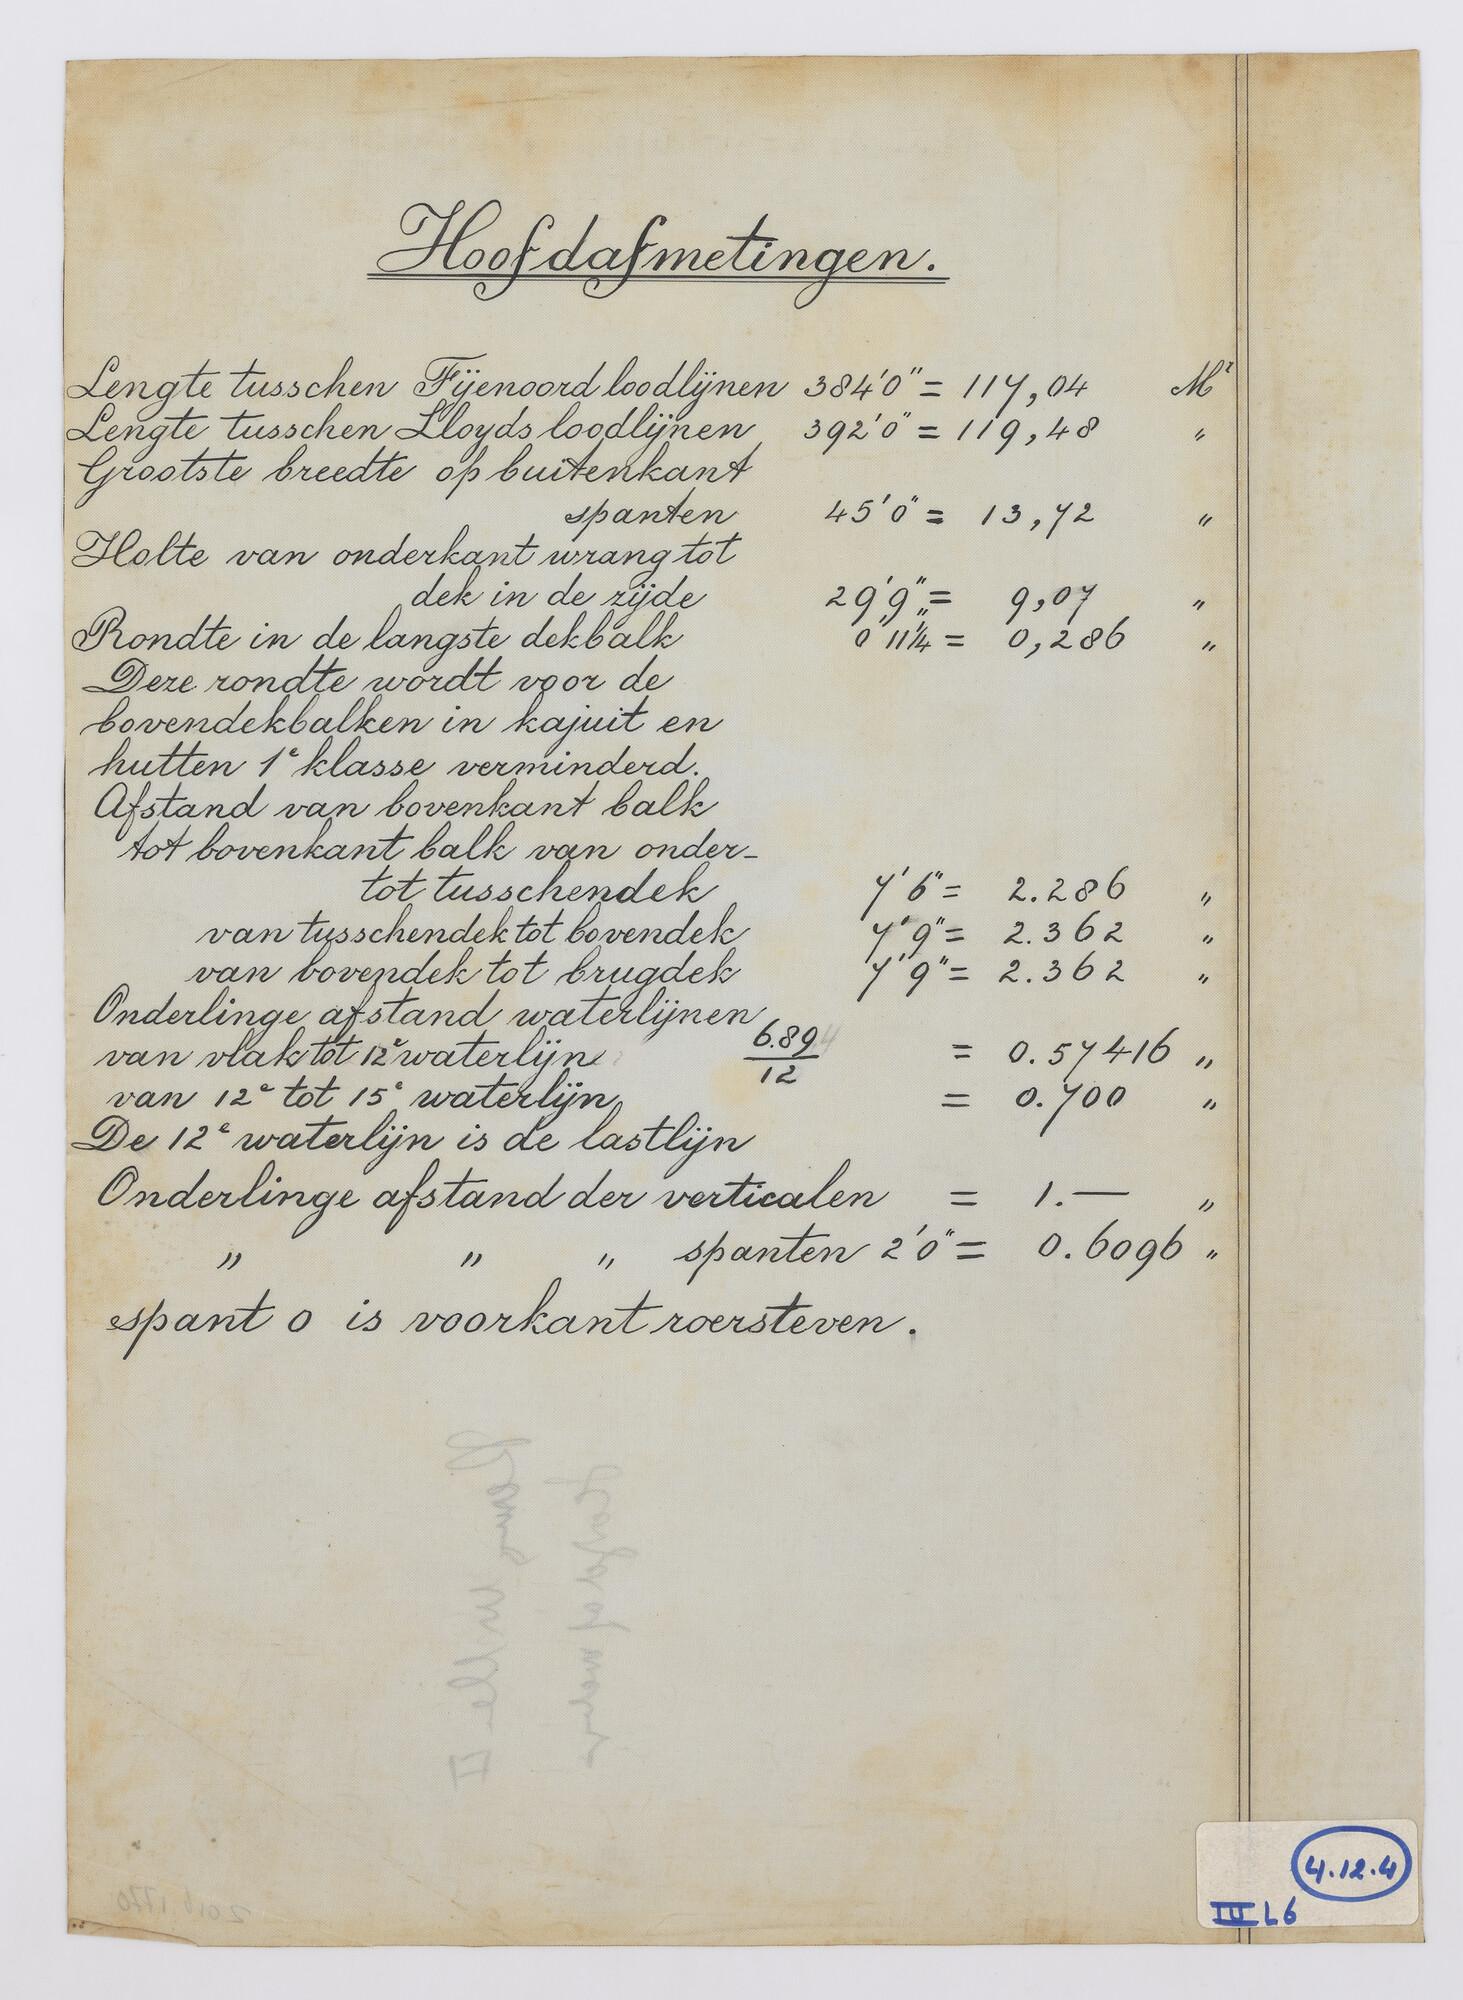 Hoofdafmetingen.
Lengte tusschen Fijenoord loodlijnen 384'0" = 117,04 Mr
Lengte tusschen Lloyds loodlijnen 392'0" = 119,48 "
Grootste breedte op buitenkant
spanten 45'0" = 13,72 "
Holte van onderkant wrang tot
dek in de zijde 29'9" = 9,07 "
Rondte in de langste dekbalk 0'11¼" = 0,286 "
Deze rondte wordt voor de
bovendekbalken in kajuit en
hutten 1e klasse verminderd.
Afstand van bovenkant balk
tot bovenkant balk van onder-
tot tusschendek 7'6" = 2.286 "
van tusschendek tot bovendek 7'9" = 2.362 "
van bovendek tot brugdek 7'9" = 2.362 "
Onderlinge afstand waterlijnen
van vlak tot 12e waterlijn 6.894/12 = 0.57416 "
van 12e tot 15e waterlijn = 0.700 "
De 12e waterlijn is de lastlijn
Onderlinge afstand der verticalen = 1.— "
" " " spanten 2'0" = 0.6096 "
spant 0 is voorkant roersteven.
4.12.4
III L6